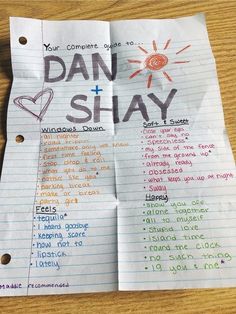 Your complete guide to...
DAN
+
SHAY
Windows Down
• all nighter
• road trippin'
• somewhere only we know
• first time feeling
• stop drop & roll
• what you do to me
• nothin' like you*
• parking brake
• make or break
• party girl
Feels
• tequila*
• I heard goodbye
• keeping score
• how not to
• lipstick
• lately
Soft & Sweet
• close your eyes
• can't say no
• Speechless
• my side of the fence
• from the ground up*
• already ready
• obsessed
• what keeps you up at night
• Sway
Happy
• show you off
• alone together
• all to myself
• Stupid love
• island time
• round the clock
• no such thing
• 19 you & me*
Maddie recommended